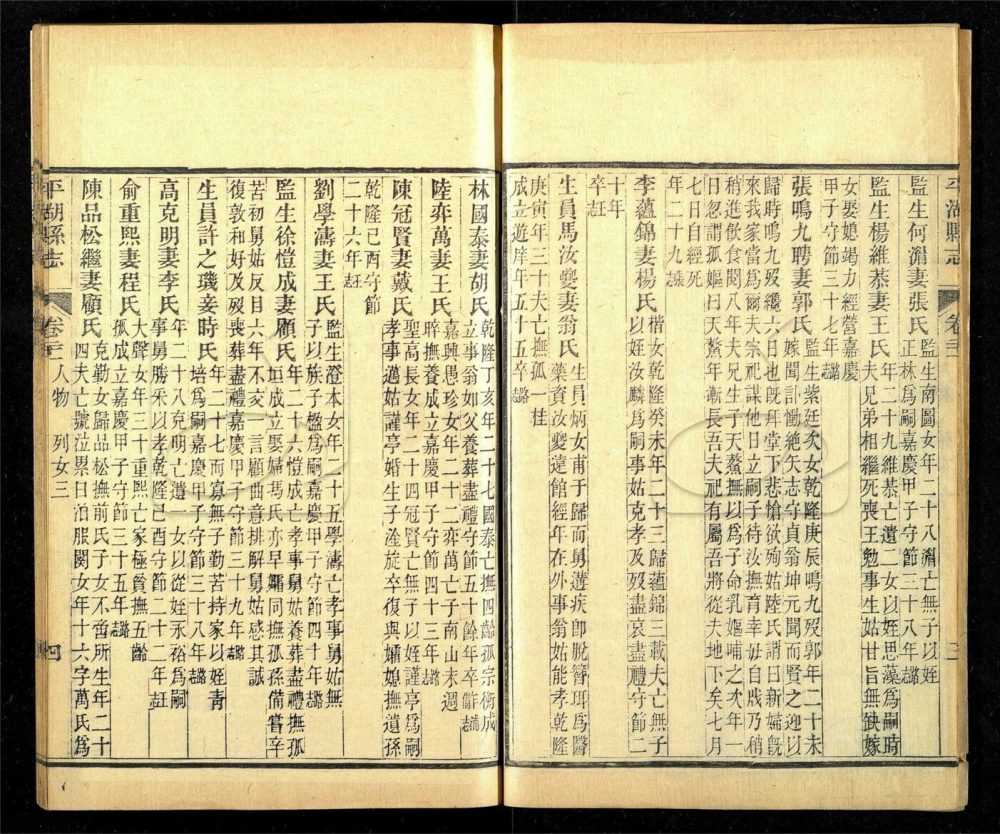 監生何溍妻張氏監生南圖女年二十八溍亡無子以姪
正林爲嗣嘉慶甲子守節三十八年
監生楊維恭妻王氏年二十九維恭亡遺二女以姪思藻爲嗣時
夫兄弟相繼死喪王勉事生姑甘旨無缺嫁
女娶媳竭力經營嘉慶
甲子守節三十七年
張鳴九聘妻郭氏監生紫廷次女乾隆庚辰鳴九歿郭年二十未
嫁聞訃慟絶矢志守貞翁坤元聞而賢之迎以
歸時鳴九歿纔六日也旣拜堂下悲愴欲殉姑陸氏謂曰新婦旣
來我家當爲爾夫宗祀謀他日立嗣子待汝撫育幸毋自戕乃稍
稍進飲食閱八年夫兄生子天鰲撫以爲子命乳嫗哺之次年一
日忽謂孤嫗曰天鰲年漸長吾夫祀有屬吾將從夫地下矣七月
七日自經死
年二十九
李蘊錦妻楊氏楷女乾隆癸未年二十三歸蘊錦三載夫亡無子
以姪汝麟爲嗣事姑克孝及歿盡哀盡禮守節二
十年
卒
生員馬汝夔妻翁氏生員炳女甫于歸而舅遘疾卽脫簪珥爲醫
藥資汝夔遠館經年在外事翁姑能孝乾隆
庚寅年三十夫亡撫孤一桂
成立遊庠年五十五卒
林國泰妻胡氏乾隆丁亥年二十七國泰亡撫四齡孤宗衡成
立事翁如父養葬盡禮守節五十餘年卒
陸弈萬妻王氏嘉興愚珍女年二十二弈萬亡子南山未週
晬撫養成立嘉慶甲子守節四十三年
陳冠賢妻戴氏聖高長女年二十四冠賢亡無子以姪謹亭爲嗣
孝事邁姑謹亭婚生子淦旋卒復與孀媳撫遺孫
乾隆己酉守節
二十六年
劉學濤妻王氏監生澄本女年二十五學濤亡孝事舅姑無
子以族子楹爲嗣嘉慶甲子守節四十年
監生徐愷成妻顧氏年二十六愷成亡孝事舅姑養葬盡禮撫孤
垣成立娶婦馬氏亦早孀同撫孤孫備嘗辛
苦初舅姑反目六年不交一言顧曲意排解舅姑感其誠
復敦和好及歿喪葬盡禮嘉慶甲子守節三十九年
生員許之璣妾時氏年二十七而寡無子勤苦持家以姪青
培爲嗣嘉慶甲子守節三十八年
高克明妻李氏年二十八克明亡遺一女以從姪永裕爲嗣
事舅勝釆以孝乾隆己酉守節二十二年
俞重熙妻程氏大聲女年三十重熙亡家極貧撫五齡
孤成立嘉慶甲子守節三十五年
陳品松繼妻顧氏克勤女歸品松撫前氏子女不啻所生年二十
四夫亡號泣累日泊服闋女年十六字萬氏爲
平湖縣志 人物 列女三